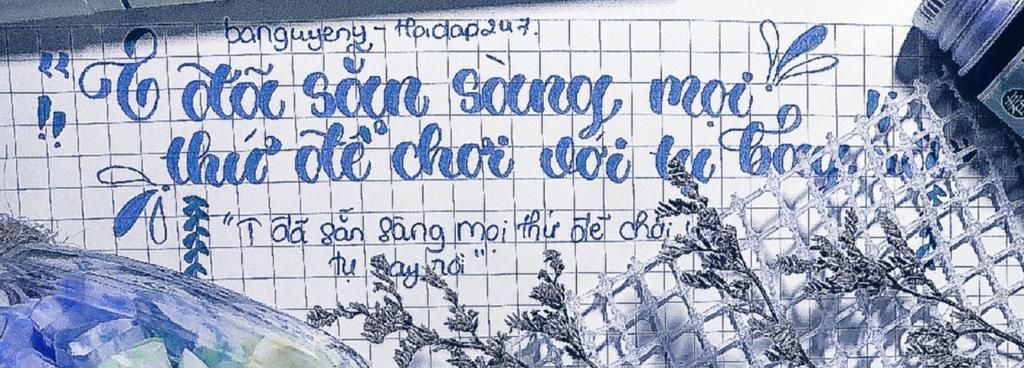 banguyeny - Hoidap247.
"T đã sẵn sàng mọi
thứ để chơi với tụ bay rồi
"T đã sẵn sàng mọi thứ để chơi
tụ bay rồi"